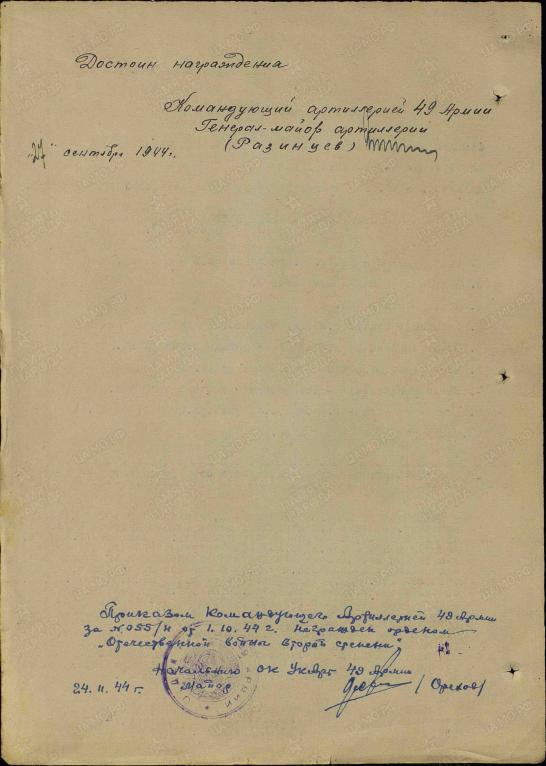 Достоин награждения
Командующий артиллерией 49 Армии
Генерал-майор артиллерии
(Разинцев)
"27" сентября 1944г.
Приказом Командующего Артиллерией 49 Армии
за №055/н от 1.10.44 г. награжден орденом
„Отечественной войны второй степени"
Начальник ОК УКАрт 49 Армии
24.11.44 г. Майор (Орехов)